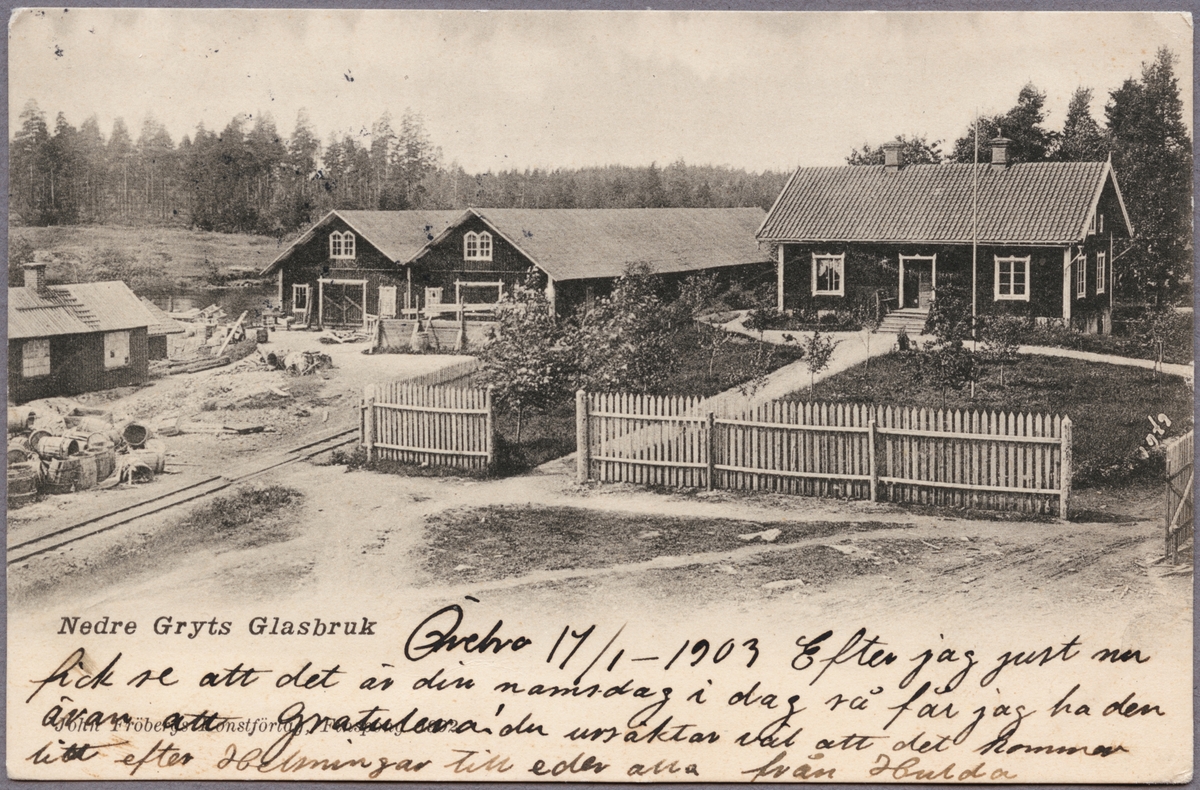 Nedre Gryts Glasbruk
Örebro 17/1 – 1903 Efter jag just nu
fick se att det är din namsdag i dag så får jag ha den
äran att Gratulera! du ursäktar väl att det kommer
John Fröbergs Konstförlag, Finspong
litt efter Helsningar till eder alla från Hulda